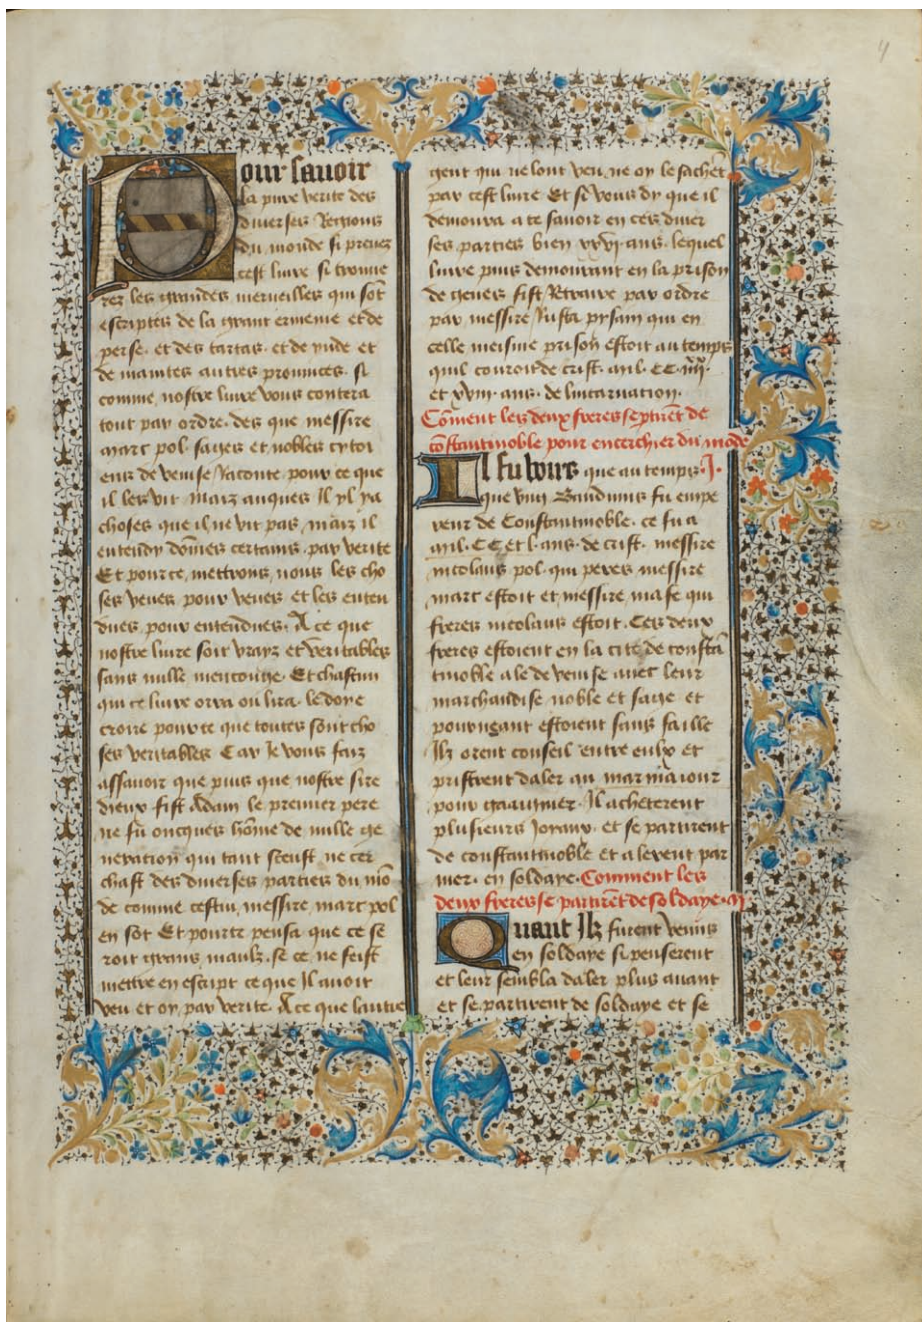 4
Pour sauoir
la pure verite des
diuerses Regions
du monde si prenez
cest liure si trouue
rez les grandes merueilles qui sõt
escriptes de la grant ermenie et de
perse. et des tartas. et de ynde et
de maintes autres prouinces. si
comme nostre liure vous contera
tout par ordre. des que messire
marc pol. sages et nobles cytoi
ens de venise Raconte pour ce que
il les vit Maiz auques Il yl ya
choses que il ne vit pas, maiz il
entendy dõmes certains. par verite
Et pour ce, mettrons, nous les cho
ses veues pour veues et les enten
dues pour entendues. A ce que
nostre liure soit vrayz et veritables
sans nulle mencouge. Et chascun
qui ce liure orra ou lira. le doye
croire pour ce que toutes sont cho
ses veritables Car Je vous faiz
assauoir que puis que nostre sire
dieux fist Adam le premier pere
ne fu oncques hõme de nulle ge
neration qui tant sceust, ne cer
chast des diuerses parties du mõ
de comme cestui, messire, marc pol
en sot Et pour ce pensa que ce se
roit grans maulz. se ce. ne feist
mettre en escript ce que Il auoit
veu et oy. par verite. A ce que lautre
gent qui ne lont veu, ne oy le sachẽt
par cest liure Et si vous dy que il
demoura a ce sauoir en ces diuer
ses parties bien xxvj. ans. lequel
liure puis demourant en la prison
de genes fist Retraire par ordre
par messire Rusta pysam qui en
celle meisme prison estoit au temps
quil couroit de crist. mil. CC. iiij.
et xviij. ans. de lincarnation.
Cõment les deux freres septirẽt de
cõstantinoble pour encercher du mõde
Il fu voirs que au temps. J.
que Baudiuns fu empe
reur de Constantinoble. ce fu a
mil. CC et l. ans. de crist. messire
nicolaus pol. qui peres messire
marc estoit et messire, mafe qui
freres nicolaus estoit. Ces deux
freres estoient en la cite de constã
tinoble ale de venise auec leur
marchandise noble et sage et
pourueant estoient sans faille
Ilz orent conseil entre eulx et
pristrent daler au mar maiour
pour gaaignier. Il acheterent
plusieurs Joyaux. et se partirent
de constantinoble et alerent par
mer. en soldaye. Comment les
deux freres se partirẽt de soldaye. ij
Quant Ilz furent venus
en soldaye si penserent
et leur sembla daler plus auant
et se. partirent de soldaye et se